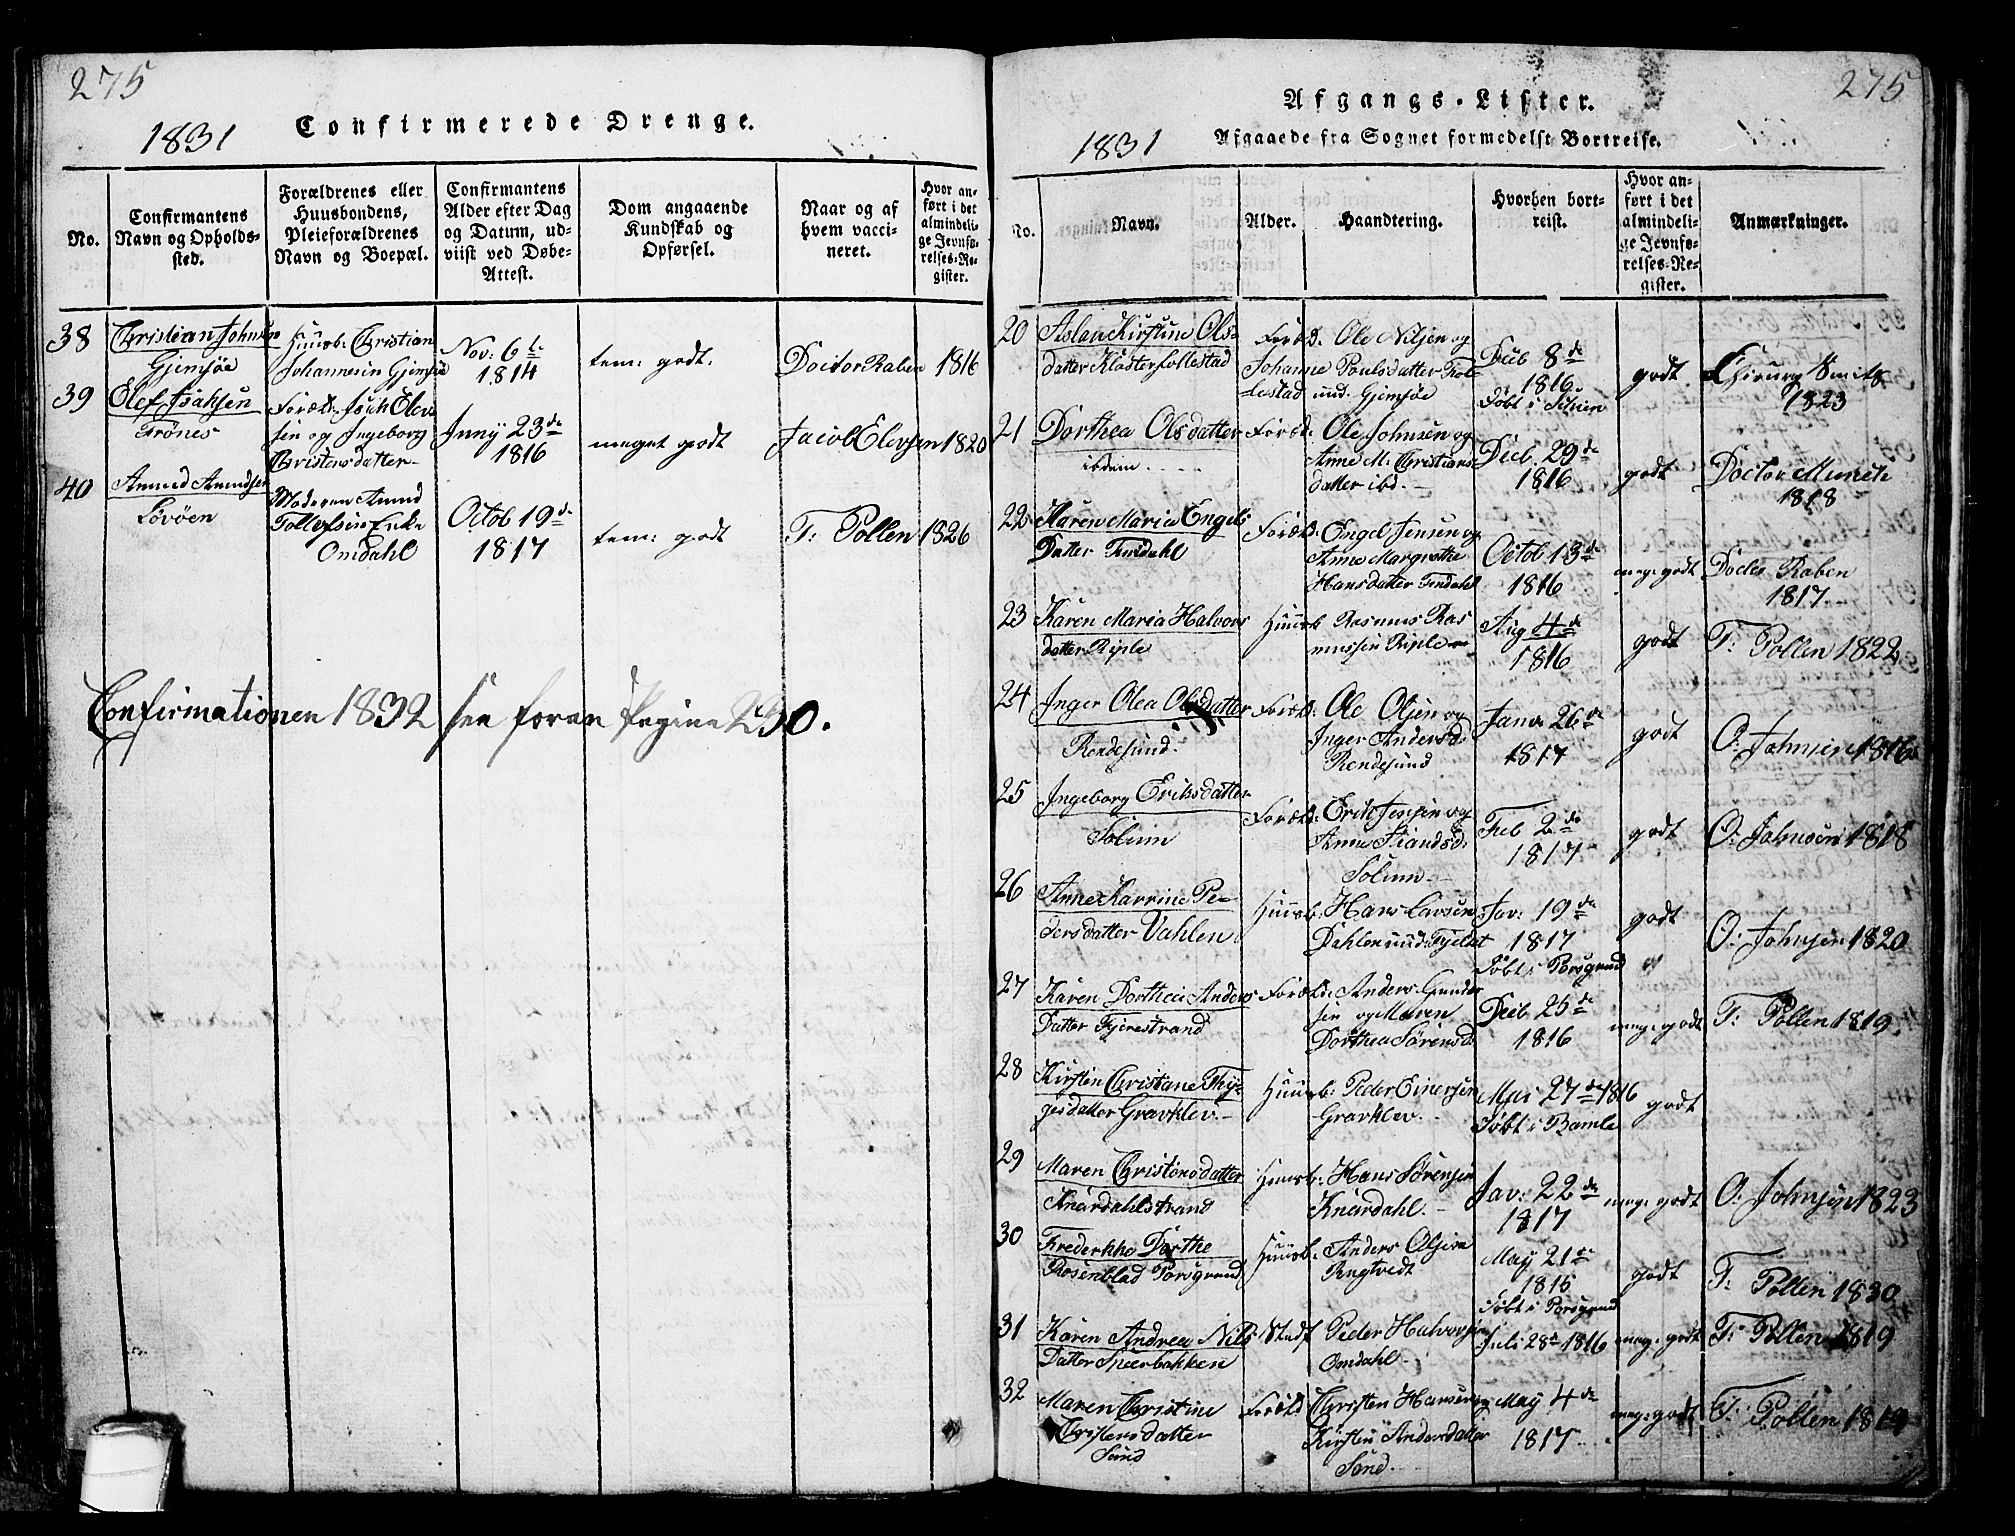 275
1831 Confirmerede Drenge.
No.
Confirmantens Navn og Opholds-sted.
Forældrenes eller Huusbondens, Pleieforældrenes Navn og Boepæl.
Confirmantens Alder efter Dag og Datum, ud-viist ved Døbe-Attest.
Dom angaaende Kundskab og Opførsel.
Naar og af hvem vacci-neret.
Hvor an-ført i det almindeli-ge Jevnfø-relses-Re-gister.
38 Christian Johnsen
Gjemsøe
Huusb: Christian
Johannesen Gjemsøe
Nov: 6te
1814
tem: godt.
Doctor Raben 1816
39 Olef Isaksen
Trönes
Foræld: Isach Elev
sen og Ingeborg
Christensdatter
Juny 23de
1816
meget godt
Jacob Elevsen 1820
40 Amund Amundsen
Lövöen
Moderen Amund
Tollefsen Enke
Omdahl
Octob 19de
1817
tem: godt
T: Pollen 1826
Confirmationen 1832 see foran Pagina 230.
275
Afgangs-Lister.
1831 Afgaaede fra Sognet formedelst Bortreise.
No.
Navn.
Alder.
Haandtering.
Hvorhen bort-reist.
Hvor an-ført i det almindeli-ge Jevnfø-relses-Re-gister.
Anmærkninger.
20 Aslau Kirstine Ols-
datter Klosterfollestad
Foræld: Ole Nilsen og
Johanne Poulsdatter Fol
lestad und. Gjemsøe
Decb 8de
1816
Föbt i Schien
godt
Chirurg Smith
1823
21 Dorthea Olsdatter
ibdem
Foræld: Ole Johnsen og
Anne M. Christians
datter ibd.
Decb 29de
1816
godt
Doctor Munch
1818
22 Karen Maria Engels
Datter Omdahl
Foræld: Engel Jensen og
Anne Margrethe
Hansdatter Omdahl
Octob 13de
1816
meg: godt
Docter Raben
1817
23 Karen Maria Halvors
datter Riple
Huusb Rasmus Ras
mussen Riple
Aug 4de
1816
godt
T: Pollen 1822
24 Inger Olea Olsdatter
Rendesund.
Foræld: Ole Olsen og
Inger Andersd:
Rendesund
Janu 26de
1817
godt
O: Johnsen 1816
25 Ingeborg Eriksdatter
Solum
Foræld: Erik Jensen og
Anne
Solum
Feb 2de
1817
godt
O: Johnsen 1818
26 Anne Karrine Pe-
dersdatter Vahlen
Huusb: Hans Larsen
Dahlen
Jav: 19de
1817
Föbt i Porsgrund
godt
O: Johnsen 1820
27 Karen Dorthea Anders
Datter Fjerestrand
Foræld: Anders Gunder
sen og Maren
Dorthea Sørensd:
Decb 25de
1816
meg: godt
T: Pollen 1819.
28 Kirsten Christiane Thy-
gesdatter Gravklev.
Huusb: Peder Einersen
Gravklev.
Mai 27de 1816
Föbt i Bamle
godt
29 Maren Christensdatter
Kneardahlstrand
Huusb: Hans Sørensen
Kneardahl.
Jav: 22de
1817
meg: godt
O: Johnsen 1823
30 Frederkke Dorthe
Rosenblad Porsgrund
Huusb: Anders Olsen
Rugtvedt
May 21de
1815
Föbt i Porsgrund
godt
T: Pollen 1830
31 Karen Andrea Nils
Datter Spærbakken
Stedf Peder Halvorsen
Omdahl.
Juli 28de 1816
meg: godt
T: Pollen 1819
32 Maren Christine
Christensdatter
Sund
Foræld Christen Hansen og
Kirsten Andersdatter
Sund.
May 4de
1817
meg: godt
T: Pollen 1819